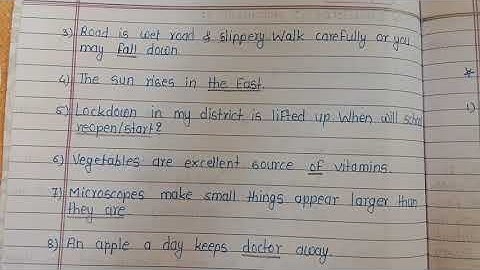 3) Road is wet road & slippery Walk carefully or you
may fall down.
4) The sun rises in the East.
5) Lockdown in my district is lifted up. When will school
reopen/start?
6) Vegetables are excellent source of vitamins.
7) Microscopes make small things appear larger than
they are
8) An apple a day keeps doctor away.
*
1)